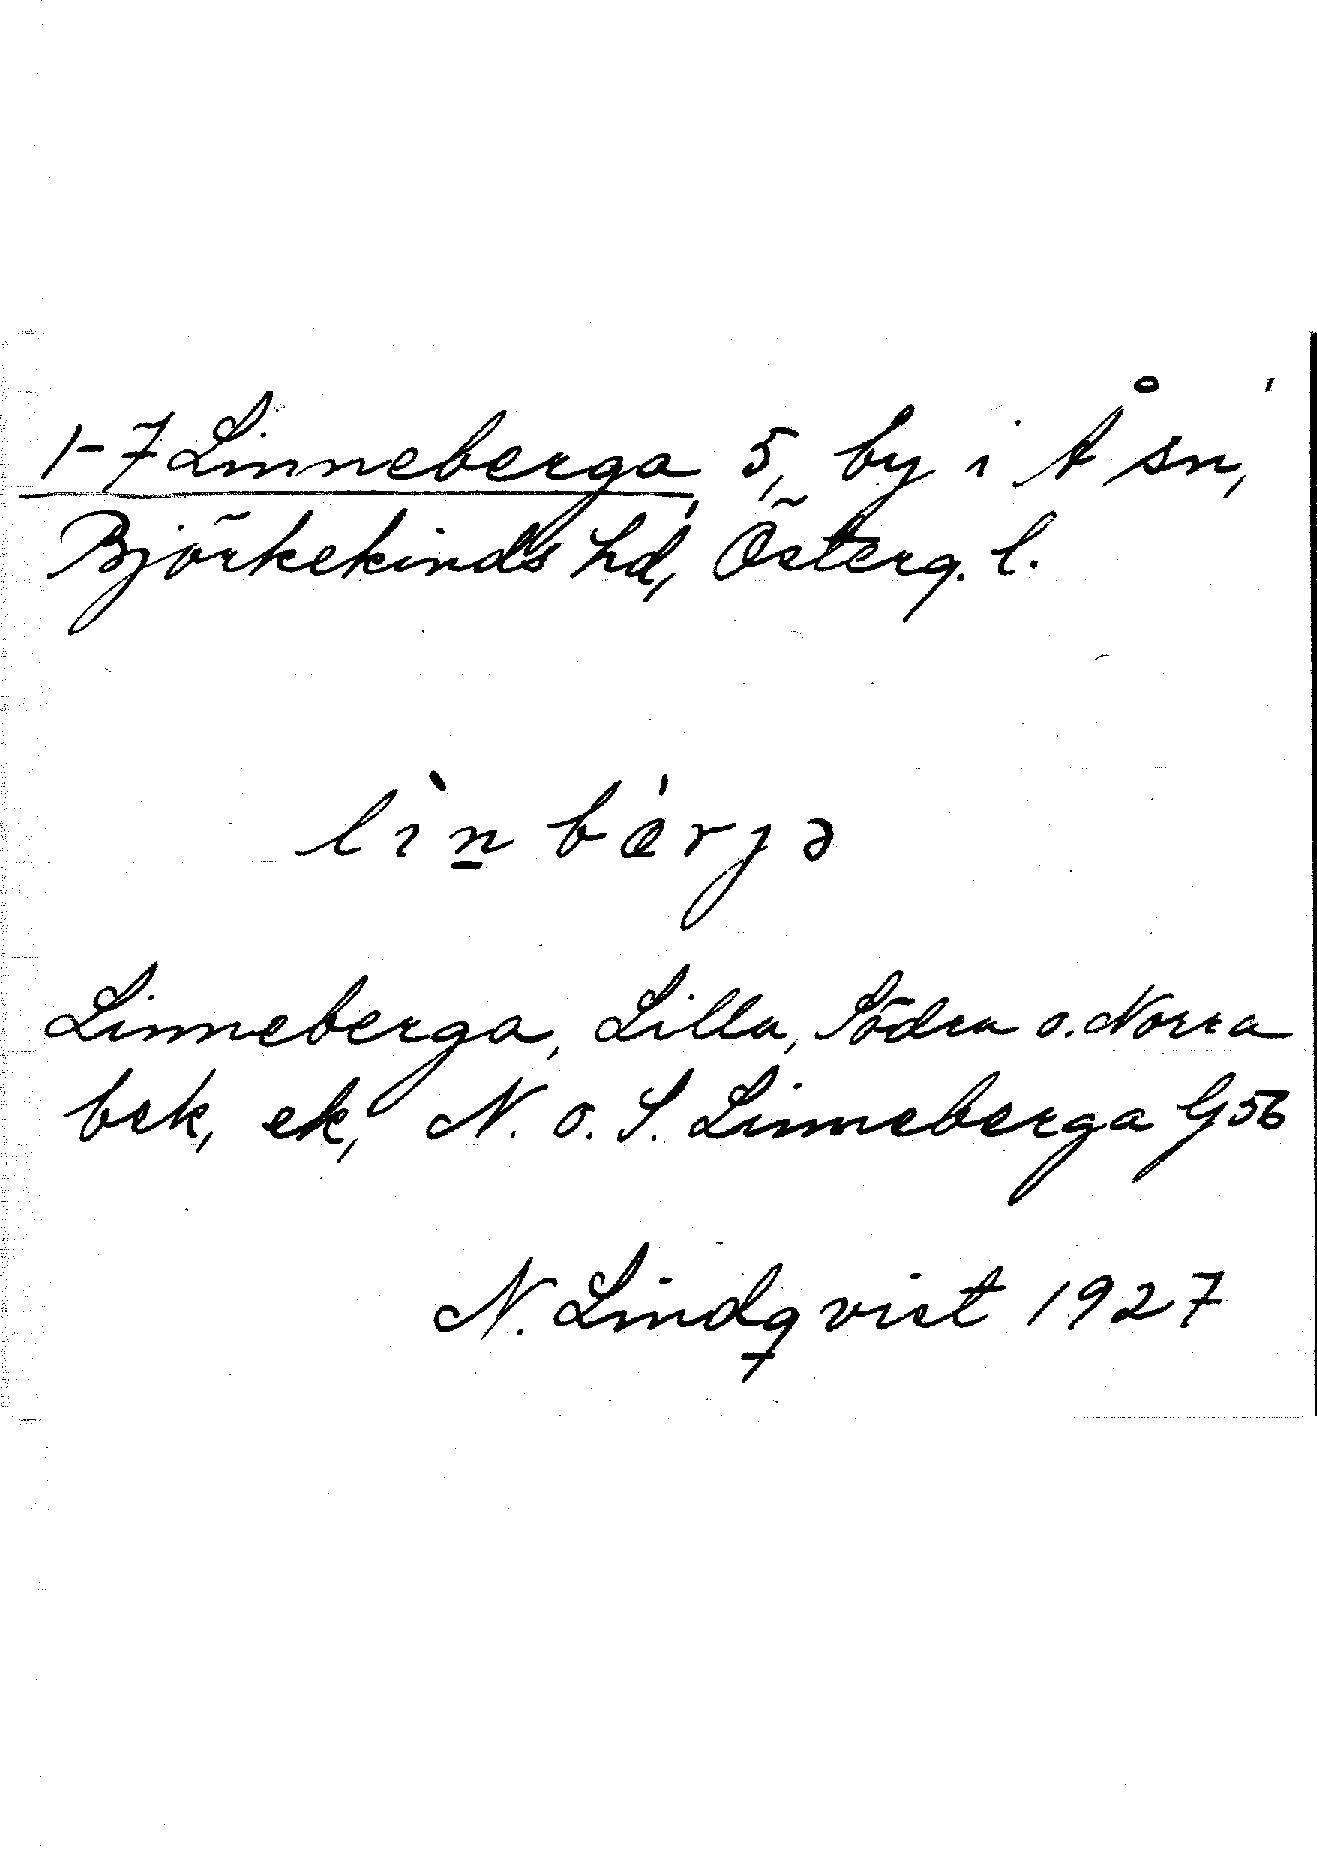 1-7 Linneberga, 5, by i Å sn,
Björkekinds hd, Österg. l.
lìn bärjə
Linneberga, Lilla, Södra o. Norra
bek, ek, N. o. S. Linneberga G56
N. Lindqvist 1927